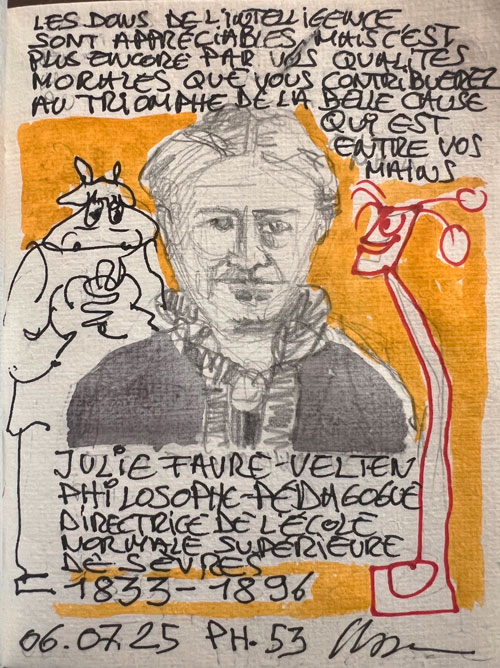 LES DONS DE L'INTELLIGENCE
SONT APPRÉCIABLES MAIS C'EST
PLUS ENCORE PAR VOS QUALITÉS
MORALES QUE VOUS CONTRIBUEREZ
AU TRIOMPHE DE LA BELLE CAUSE
QUI EST
ENTRE VOS
MAINS
JULIE FAVRE-VELTEN
PHILOSOPHE-PÉDAGOGUE
DIRECTRICE DE L'ÉCOLE
NORMALE SUPÉRIEURE
DE SÈVRES
1833-1896
06.07.25 PH.53